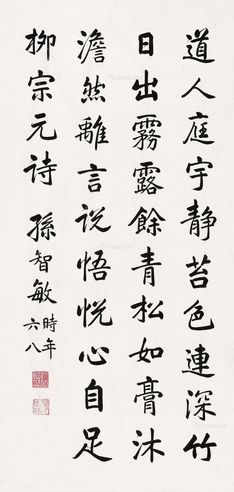 道人庭宇静苔色連深竹
日出霧露餘青松如膏沐
澹然離言说悟悦心自足
柳宗元诗 孫智敏
時年
六八